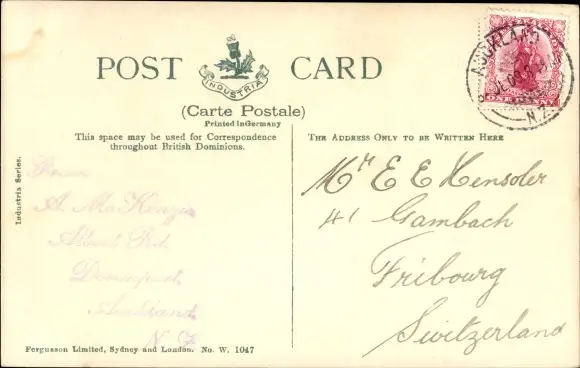 POST CARD
INDUSTRIA
(Carte Postale)
Printed in Germany
This space may be used for Correspondence
throughout British Dominions.
THE ADDRESS ONLY TO BE WRITTEN HERE
Industria Series.
From
A. MacKenzie
Albert Rd.
Devonport
Auckland
N. Z.
Mr E E Hensoler
41 Gambach
Fribourg
Switzerland
AUCKLAND
N.Z.
ONE PENNY
Fergusson Limited, Sydney and London. No. W. 1047